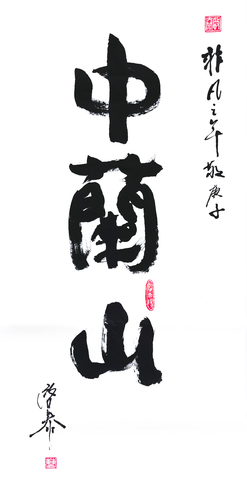 非凡之年敬庚子
中蘭山
泰